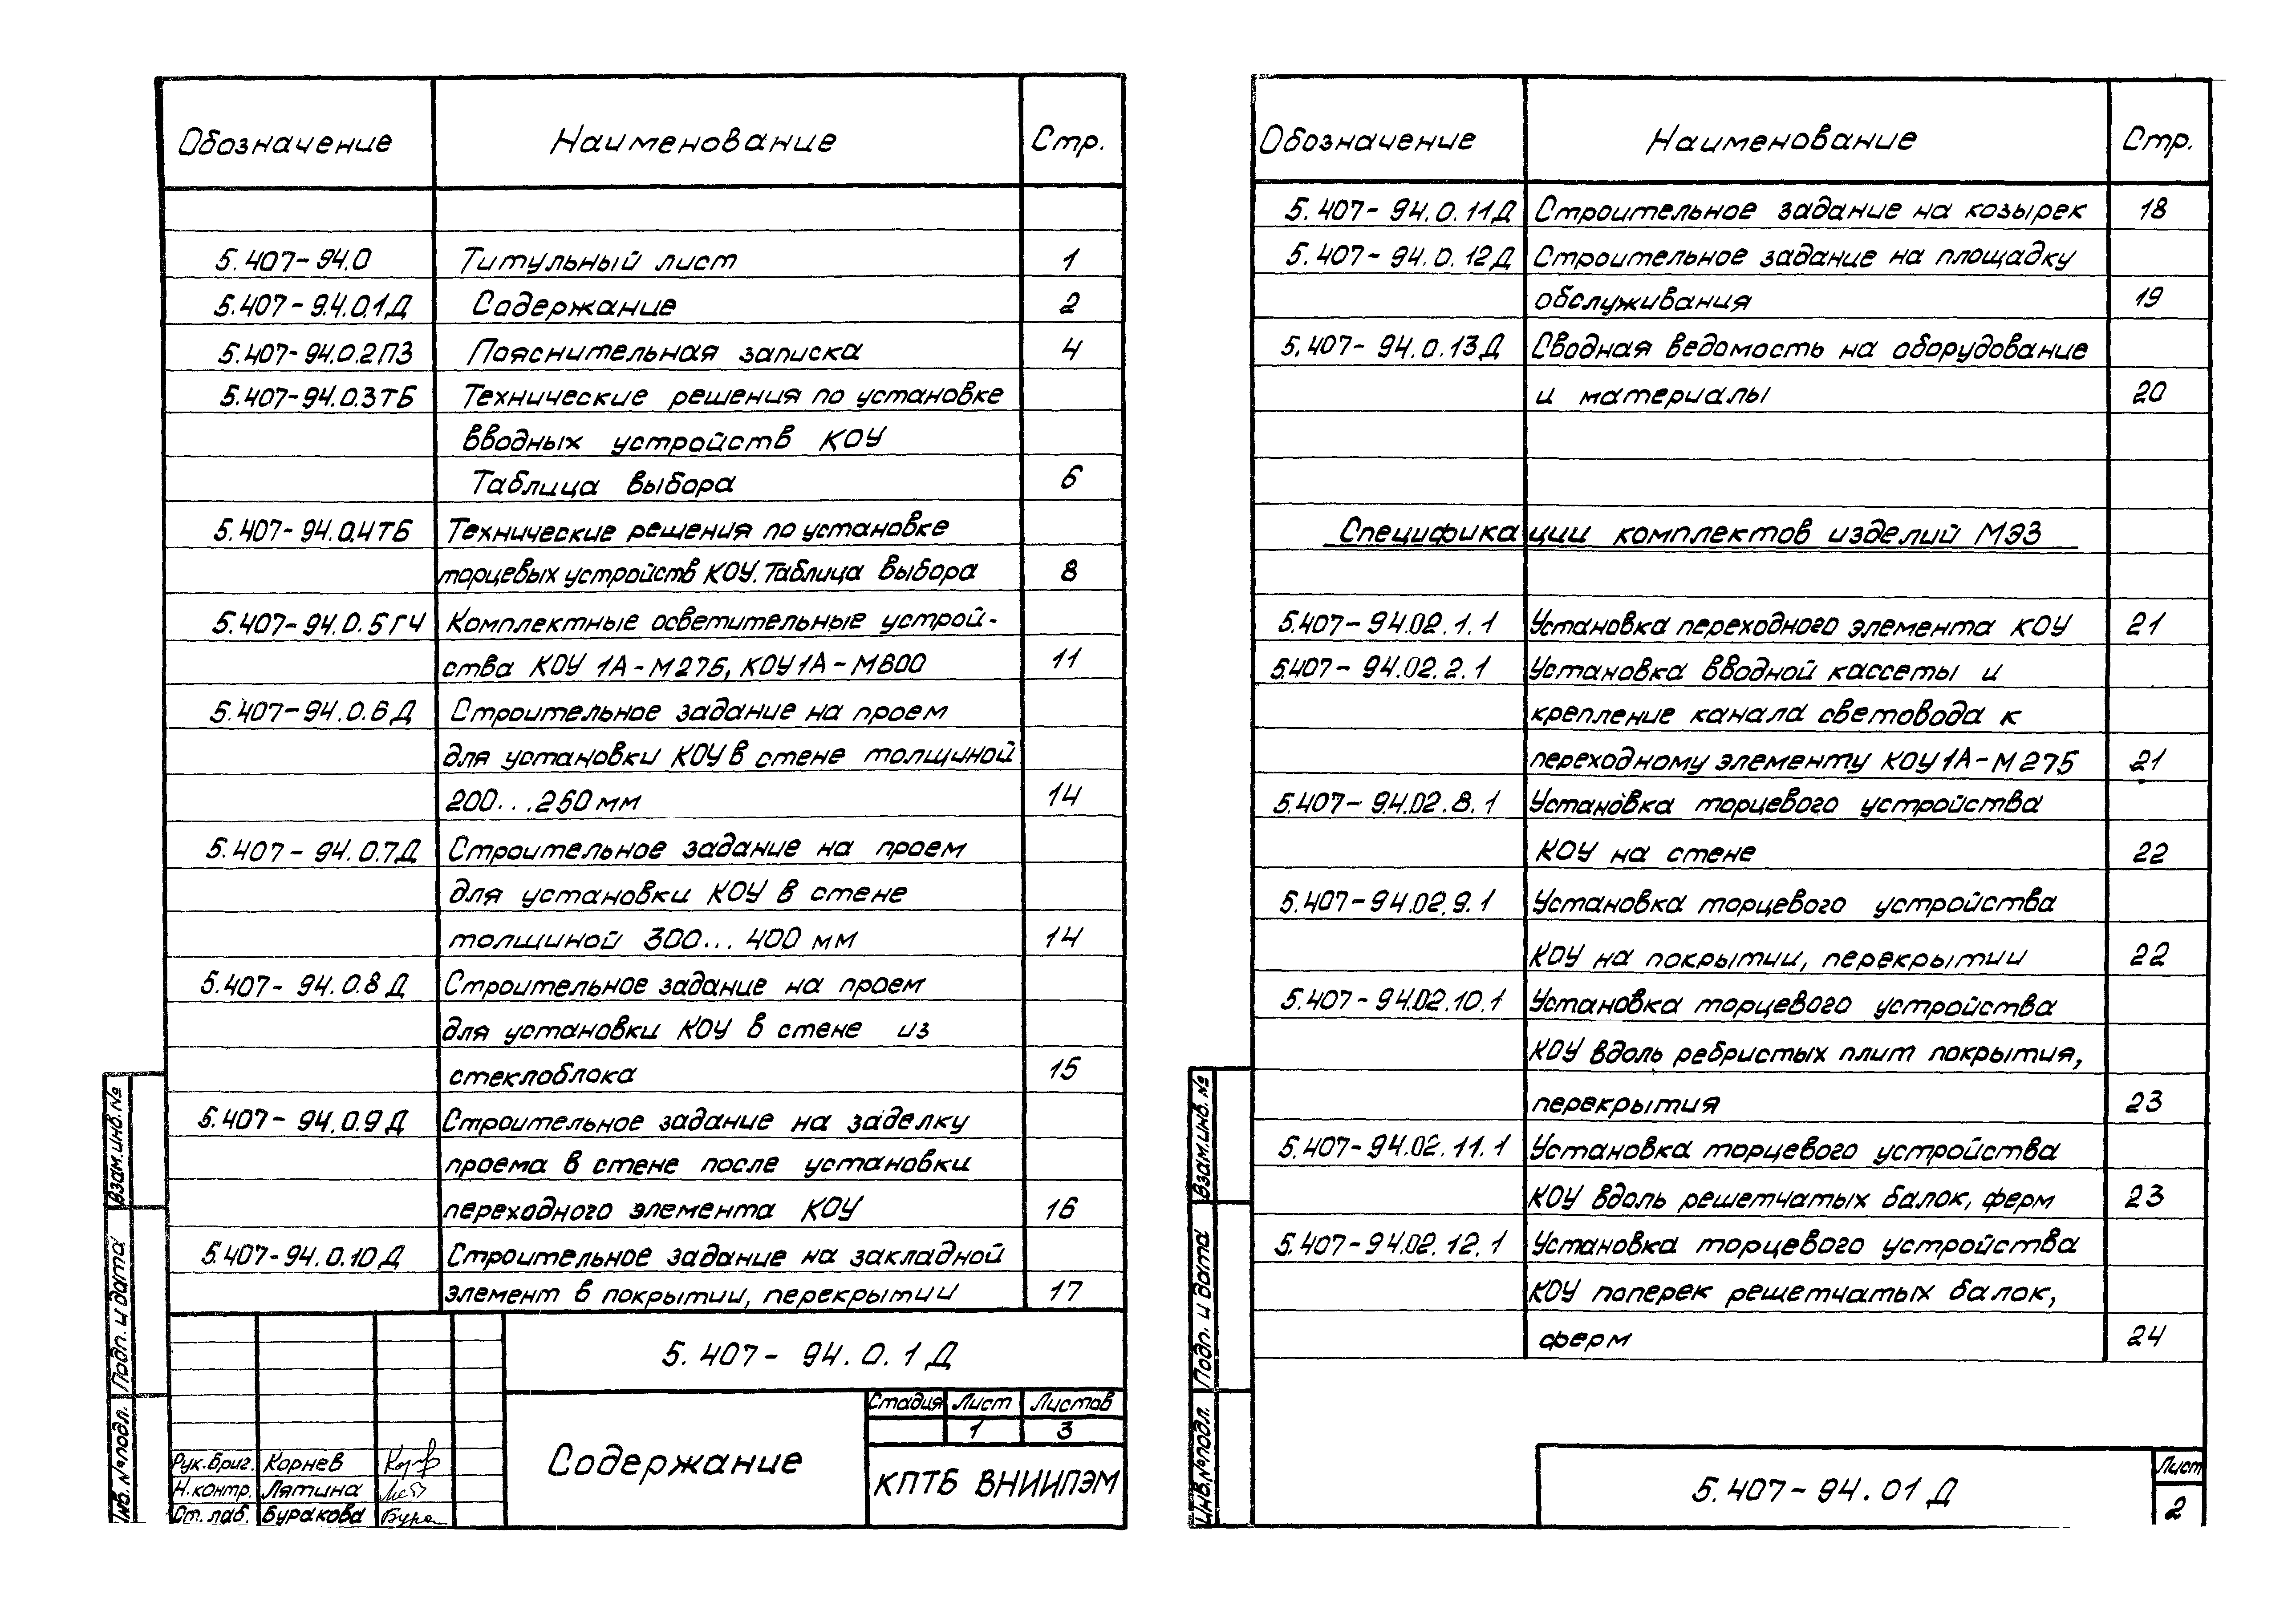 Обозначение Наименование Стр.
5.407-94.0 Титульный лист 1
5.407-94.0.1Д Содержание 2
5.407-94.0.2ПЗ Пояснительная записка 4
5.407-94.0.3ТБ Технические решения по установке
вводных устройств КОУ
Таблица выбора 6
5.407-94.0.4ТБ Технические решения по установке
торцевых устройств КОУ. Таблица выбора 8
5.407-94.0.5ГЧ Комплектные осветительные устрой-
ства КОУ 1А-М275, КОУ1А-М600 11
5.407-94.0.6Д Строительное задание на проем
для установки КОУ в стене толщиной
200...250мм 14
5.407-94.0.7Д Строительное задание на проем
для установки КОУ в стене
толщиной 300... 400 мм 14
5.407-94.0.8Д Строительное задание на проем
для установки КОУ в стене из
стеклоблока 15
5.407-94.0.9Д Строительное задание на заделку
проема в стене после установки
переходного элемента КОУ 16
5.407-94.0.10Д Строительное задание на закладной
элемент в покрытии, перекрытии 17
5.407-94.0.1Д
Стадия Лист Листов
1 3
Содержание
КПТБ ВНИИПЭМ
Рук.бриг. Корнев
Н.контр. Лятина
Ст. лаб. Буракова
Взам.инв.№
Подп. и дата
Инв.№подл.
Обозначение Наименование Стр.
5.407-94.0.11Д Строительное задание на козырек 18
5.407-94.0.12Д Строительное задание на площадку
обслуживания 19
5.407-94.0.13Д Сводная ведомость на оборудование
и материалы 20
Спецификации комплектов изделий МЭЗ
5.407-94.02.1.1 Установка переходного элемента КОУ 21
5.407-94.02.2.1 Установка вводной кассеты и
крепление канала световода к
переходному элементу КОУ1А-М275 21
5.407-94.02.8.1 Установка торцевого устройства
КОУ на стене 22
5.407-94.02.9.1 Установка торцевого устройства
КОУ на покрытии, перекрытии 22
5.407-94.02.10.1 Установка торцевого устройства
КОУ вдоль ребристых плит покрытия,
перекрытия 23
5.407-94.02.11.1 Установка торцевого устройства
КОУ вдоль решетчатых балок, ферм 23
5.407-94.02.12.1 Установка торцевого устройства
КОУ поперек решетчатых балок,
ферм 24
5.407-94.01Д
Лист
2
Взам.инв.№
Подп. и дата
Инв.№подл.